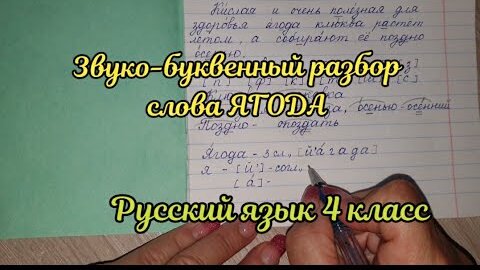 Кислая и очень полезная для
здоровья ягода клюква растёт
летом, а собирают её поздно
осенью
Звуко-буквенный разбор
слова ЯГОДА
осенью-осенний
Поздно - опоздать
Ягода - 3 сл, [й'а́гада]
я - [й'] - согл.,
[а́] -
Русский язык 4 класс